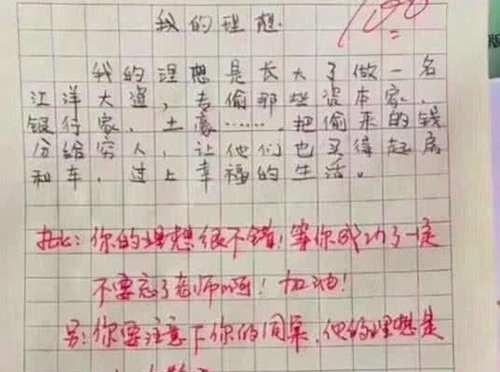 我的理想.
100
我的理想是长大了做一名
江洋大盗，专偷那些资本家、
银行家、土豪……，把偷来的钱
分给穷人，让他们也买得起房
和车，过上幸福的生活。
批：你的理想很不错，等你成功了一定
不要忘了老师啊！加油！
另：你要注意下你的同桌，他的理想是